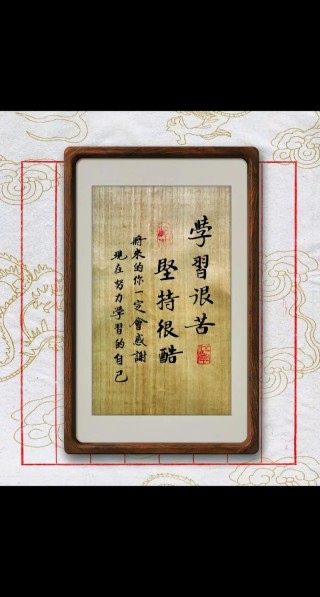 學習很苦
堅持很酷
將來的你一定會感謝
現在努力學習的自己